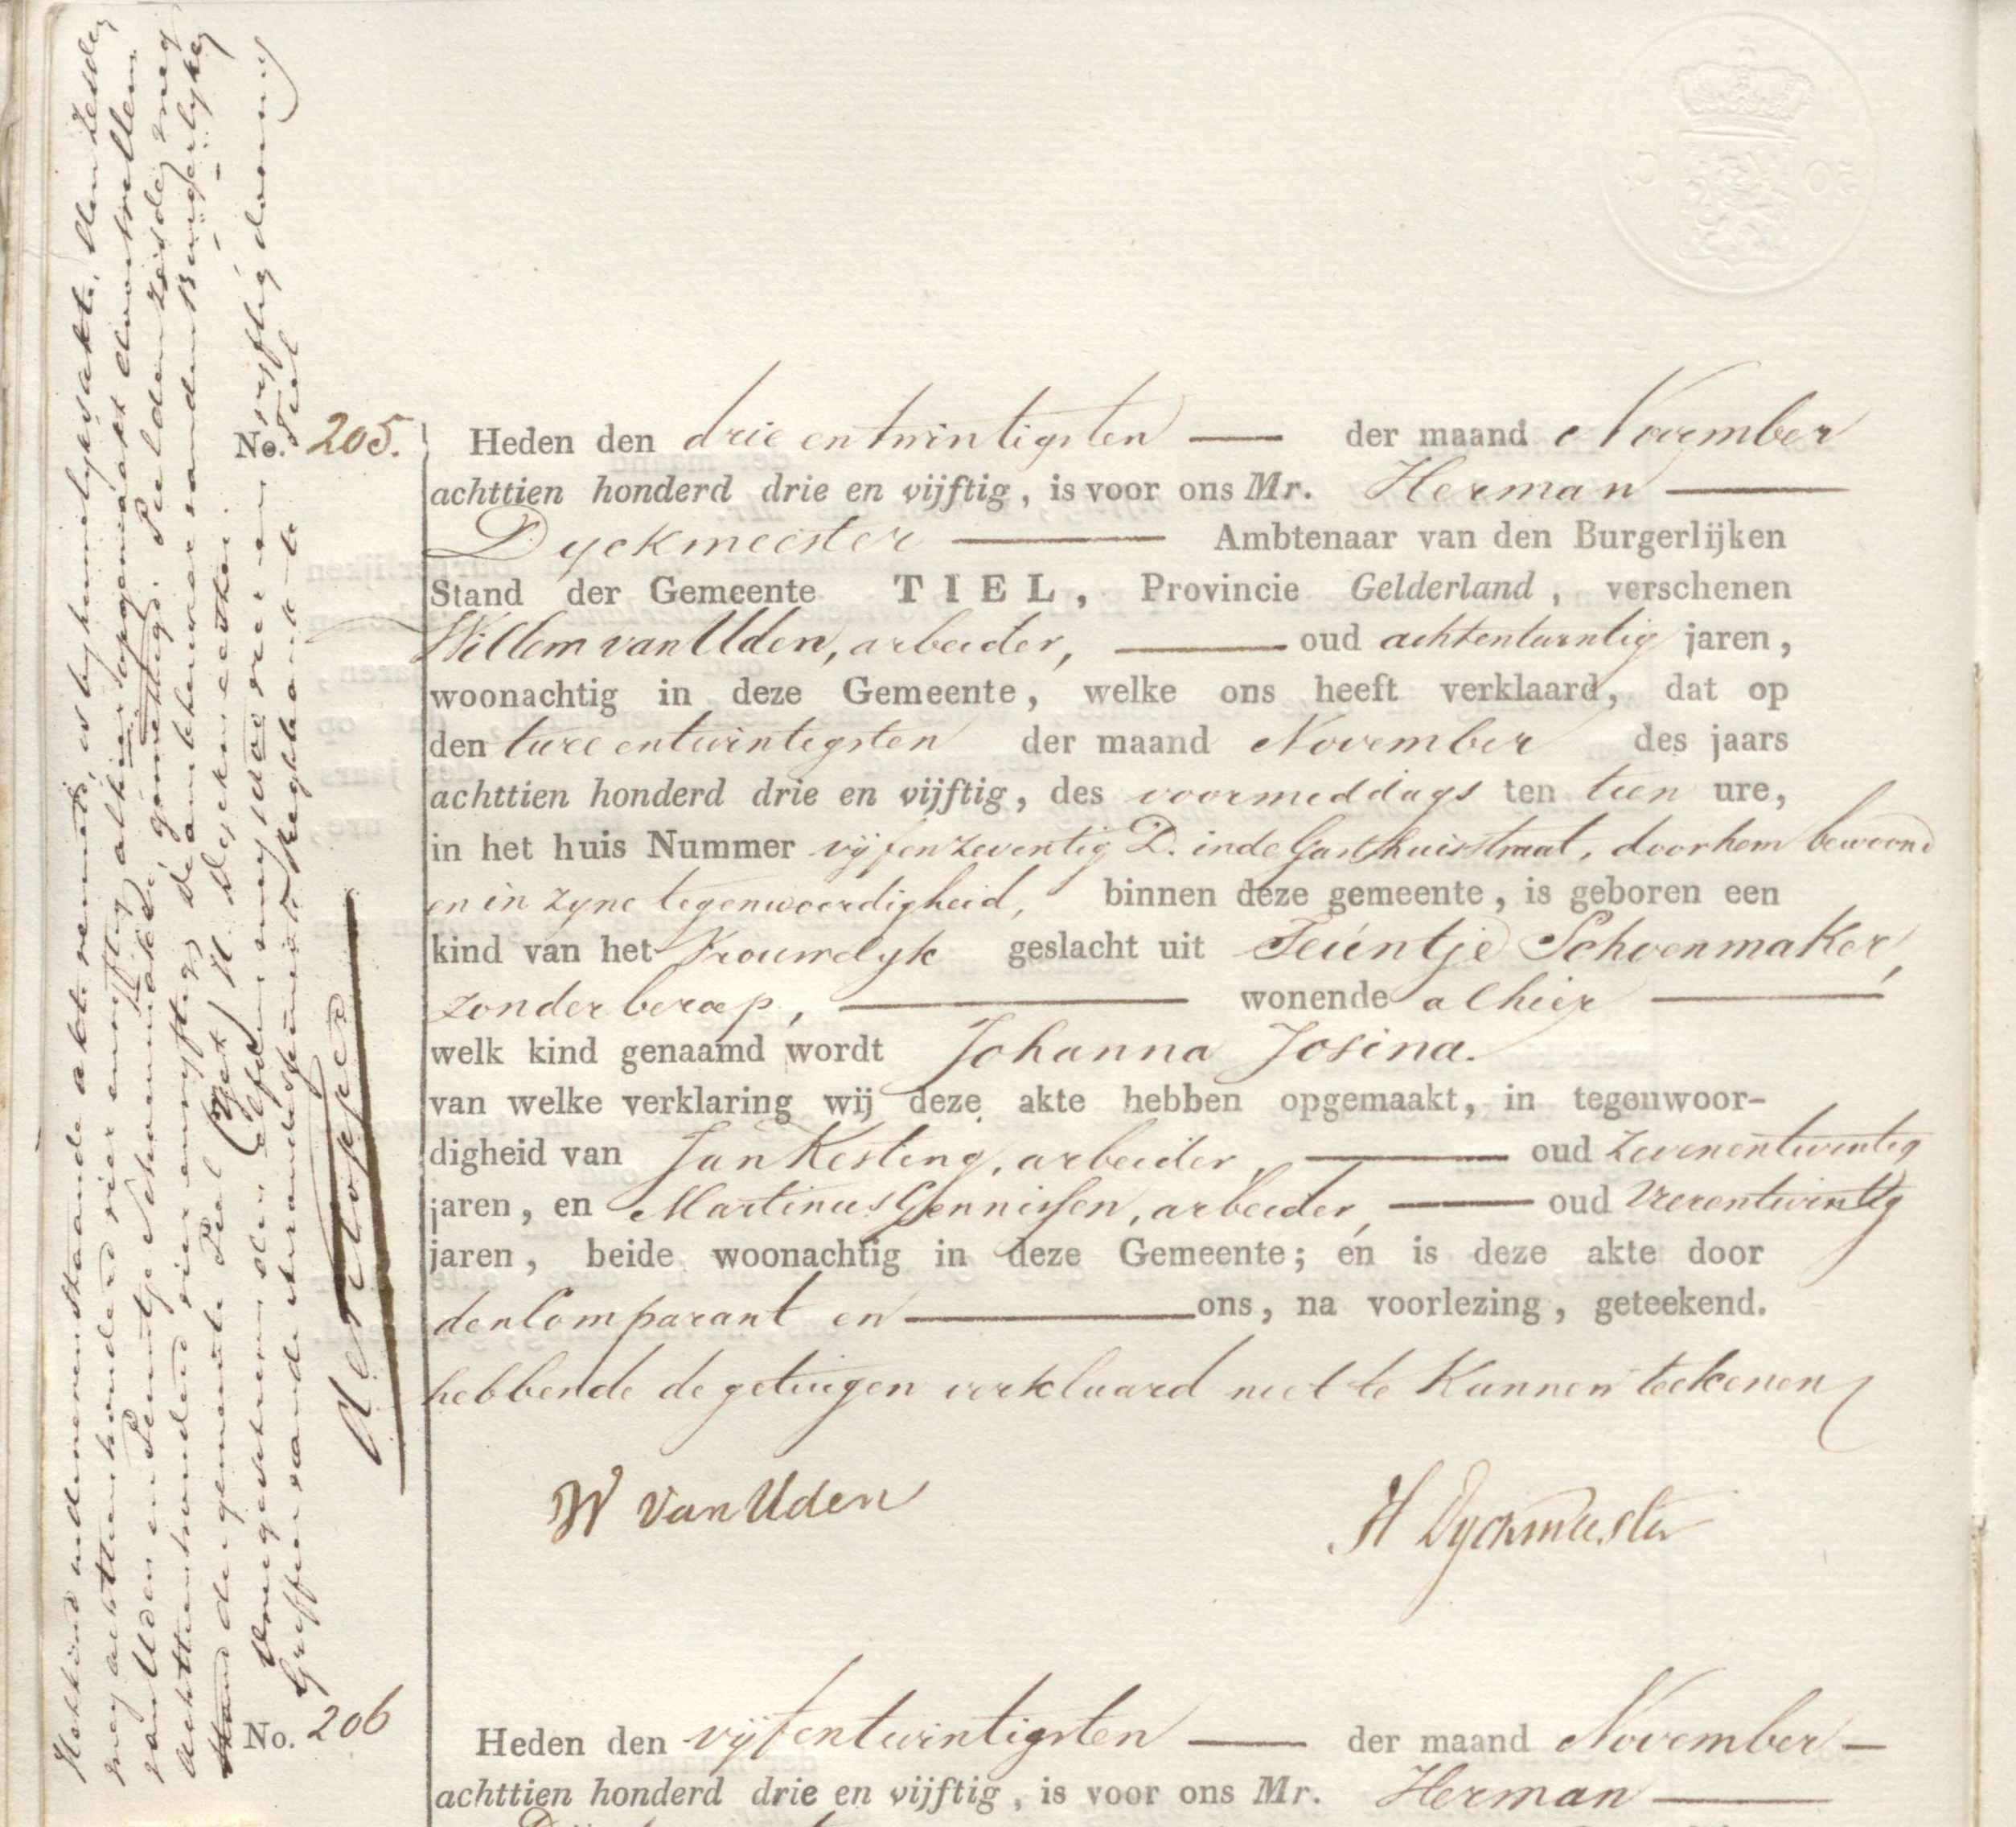 No. 205.
Heden den drie en twintigsten der maand November
achttien honderd drie en vijftig, is voor ons Mr. Herman
Dyckmeester Ambtenaar van den Burgerlijken
Stand der Gemeente TIEL, Provincie Gelderland, verschenen
Willem van Uden, arbeider, oud achtentwintig jaren,
woonachtig in deze Gemeente, welke ons heeft verklaard, dat op
den twee en twintigsten der maand November des jaars
achttien honderd drie en vijftig, des voormiddags ten tien ure,
in het huis Nummer vijfenzeventig D. in de Gasthuisstraat, door hem bewoond
en in zyne tegenwoordigheid, binnen deze gemeente, is geboren een
kind van het Vrouwelyk geslacht uit Teuntje Schoenmaker,
zonder beroep, wonende alhier
welk kind genaamd wordt Johanna Josina.
van welke verklaring wij deze akte hebben opgemaakt, in tegenwoor-
digheid van Jan Kesting, arbeider, oud zevenentwintig
jaren, en Martinus Gennissen, arbeider, oud vierentwintig
jaren, beide woonachtig in deze Gemeente; en is deze akte door
den Comparant en ons, na voorlezing, geteekend.
hebbende de getuigen verklaard niet te kunnen teekenen
W van Uden
H Dyckmeester
Het kind in de nevenstaande akte vermeld, is by huwelyksakte, den zesden
mey achttienhonderd vier en vyftig alhier opgemaakt
van Uden en Teuntje Schoenmaker, gewettigd. Tiel den zesden mey
achttienhonderd vier en vyftig, de ambtenaar van den Burgerlyken
Stand der gemeente Tiel (get) H. Dyckmeester.
Overgeschreven den elfden mey 18 vier en vyftig door my
Griffier van de Arrondissements Regtbank te Tiel
No. 206
Heden den vijfentwintigsten der maand November
achttien honderd drie en vijftig, is voor ons Mr. Herman